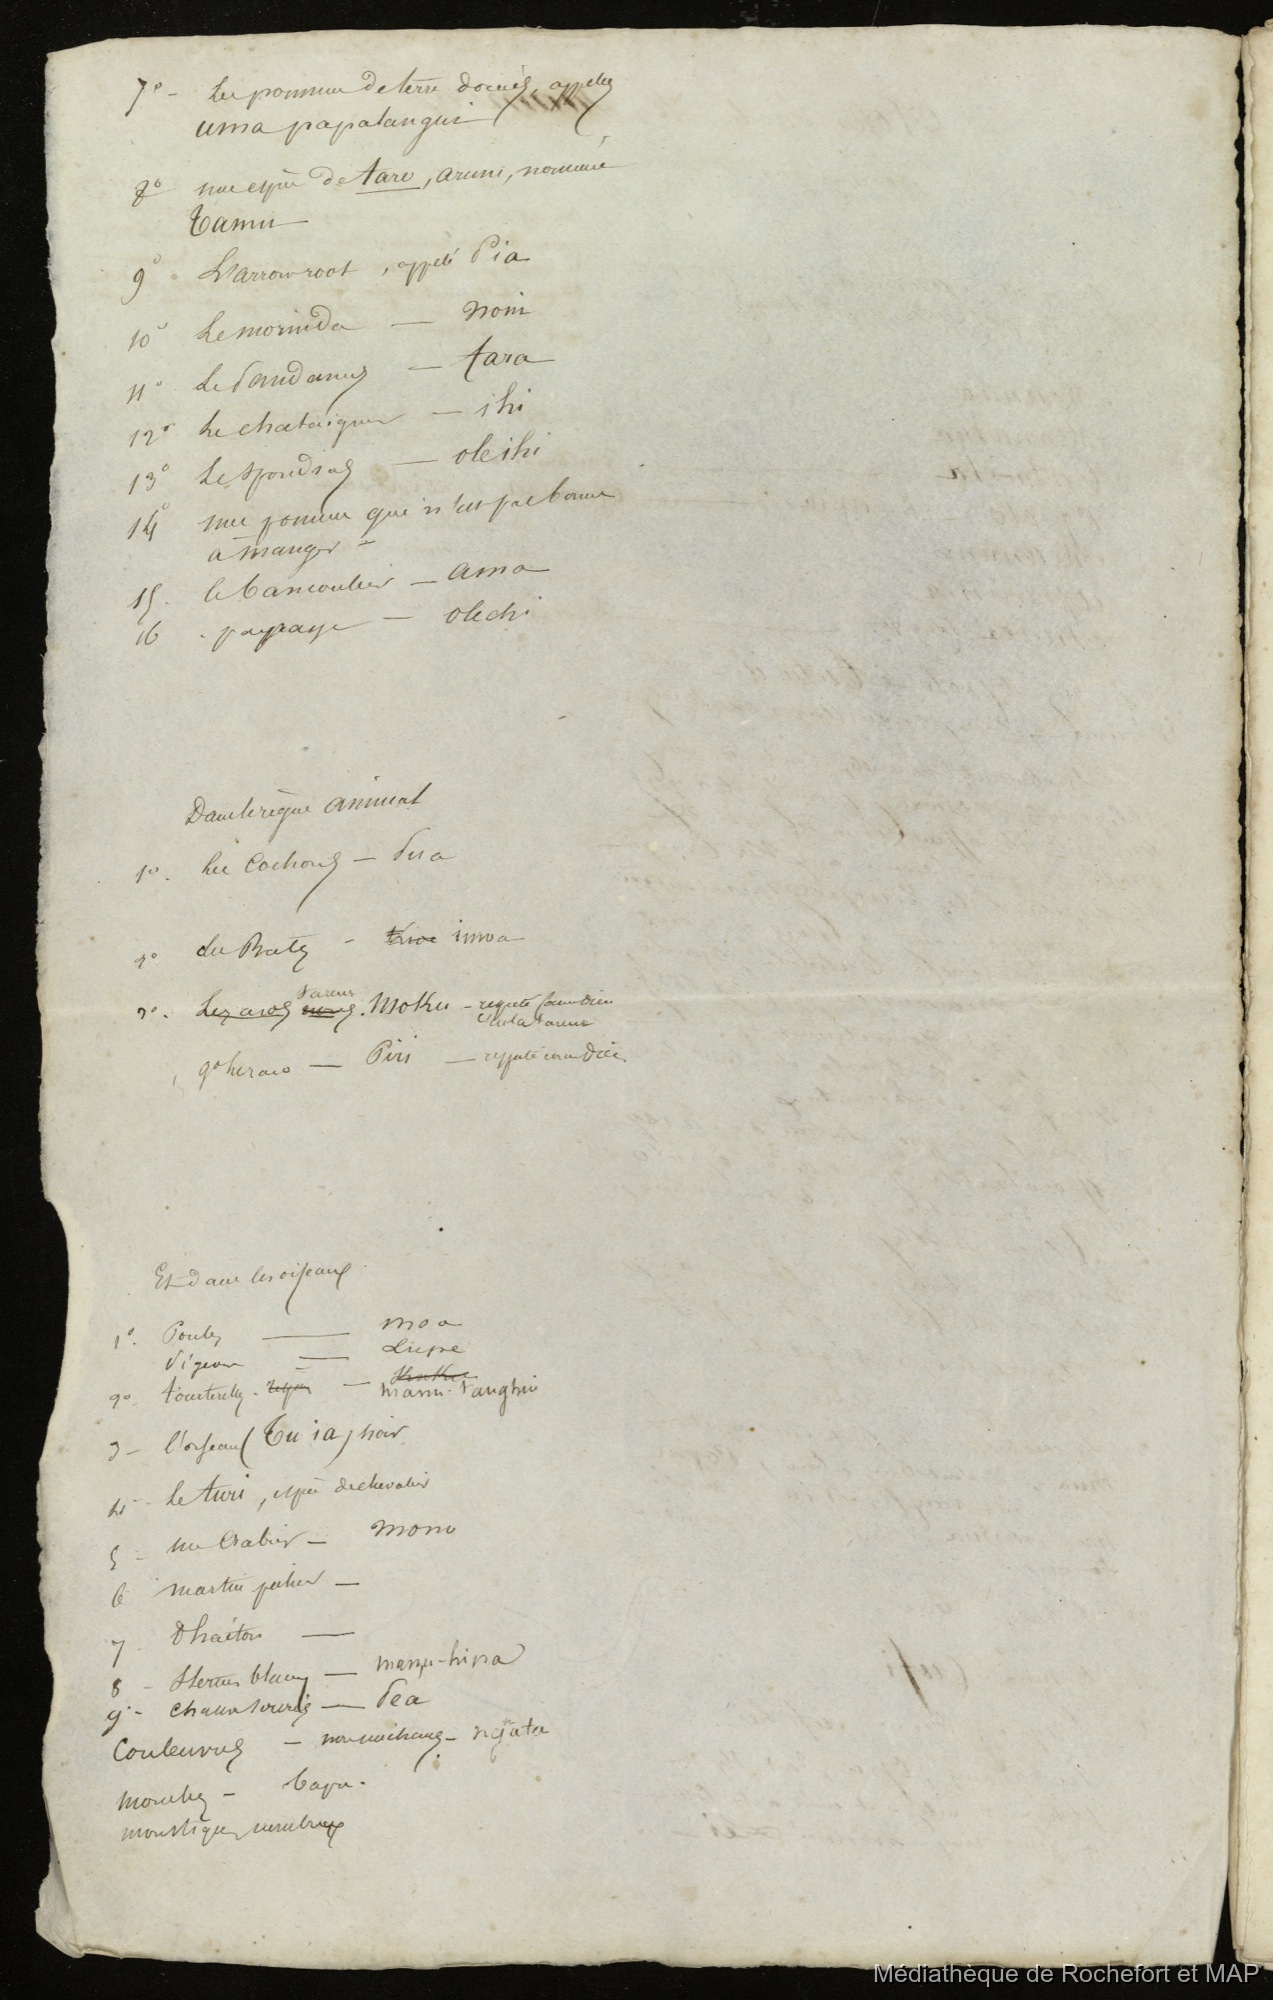 7° - Les pommes de terre douces, appelées
uma papalangui
8° une espèce de taro, arum, nommée
Tamu
9° L'arrowroot, appelé Pia
10° Le morinda — noni
11° Le Pandanus — fara
12° Le chataignier — ihi
13° Le spondias — oleihi
14° une pomme qui n'est pas bonne
à manger -
15. le bancoulier — ama
16 . papaye — olechi
Dans le règne animal
1° . Les Cochons — Pua
2° des Rats - imoa
3° . Lezards . Moku - reputé comme dieu
— Piri — reputé comme dieu
Et dans les oiseaux
1° . Poules — moa
Pigeon — Lupe
2° . tourterelles . — manu-tanghi
3 - l'oiseau (Tu ia) noir
4 - Le turi, espèce de chevalier
5 - un Crabier — mono
6 martin pêcheur —
7 - Phaéton —
8 - Sternes blancs — manu-hina
9 - chauve souris — Pea
Couleuvres — non méchans - ngata
mouches - 
moustiques nombreux
Médiathèque de Rochefort et MAP